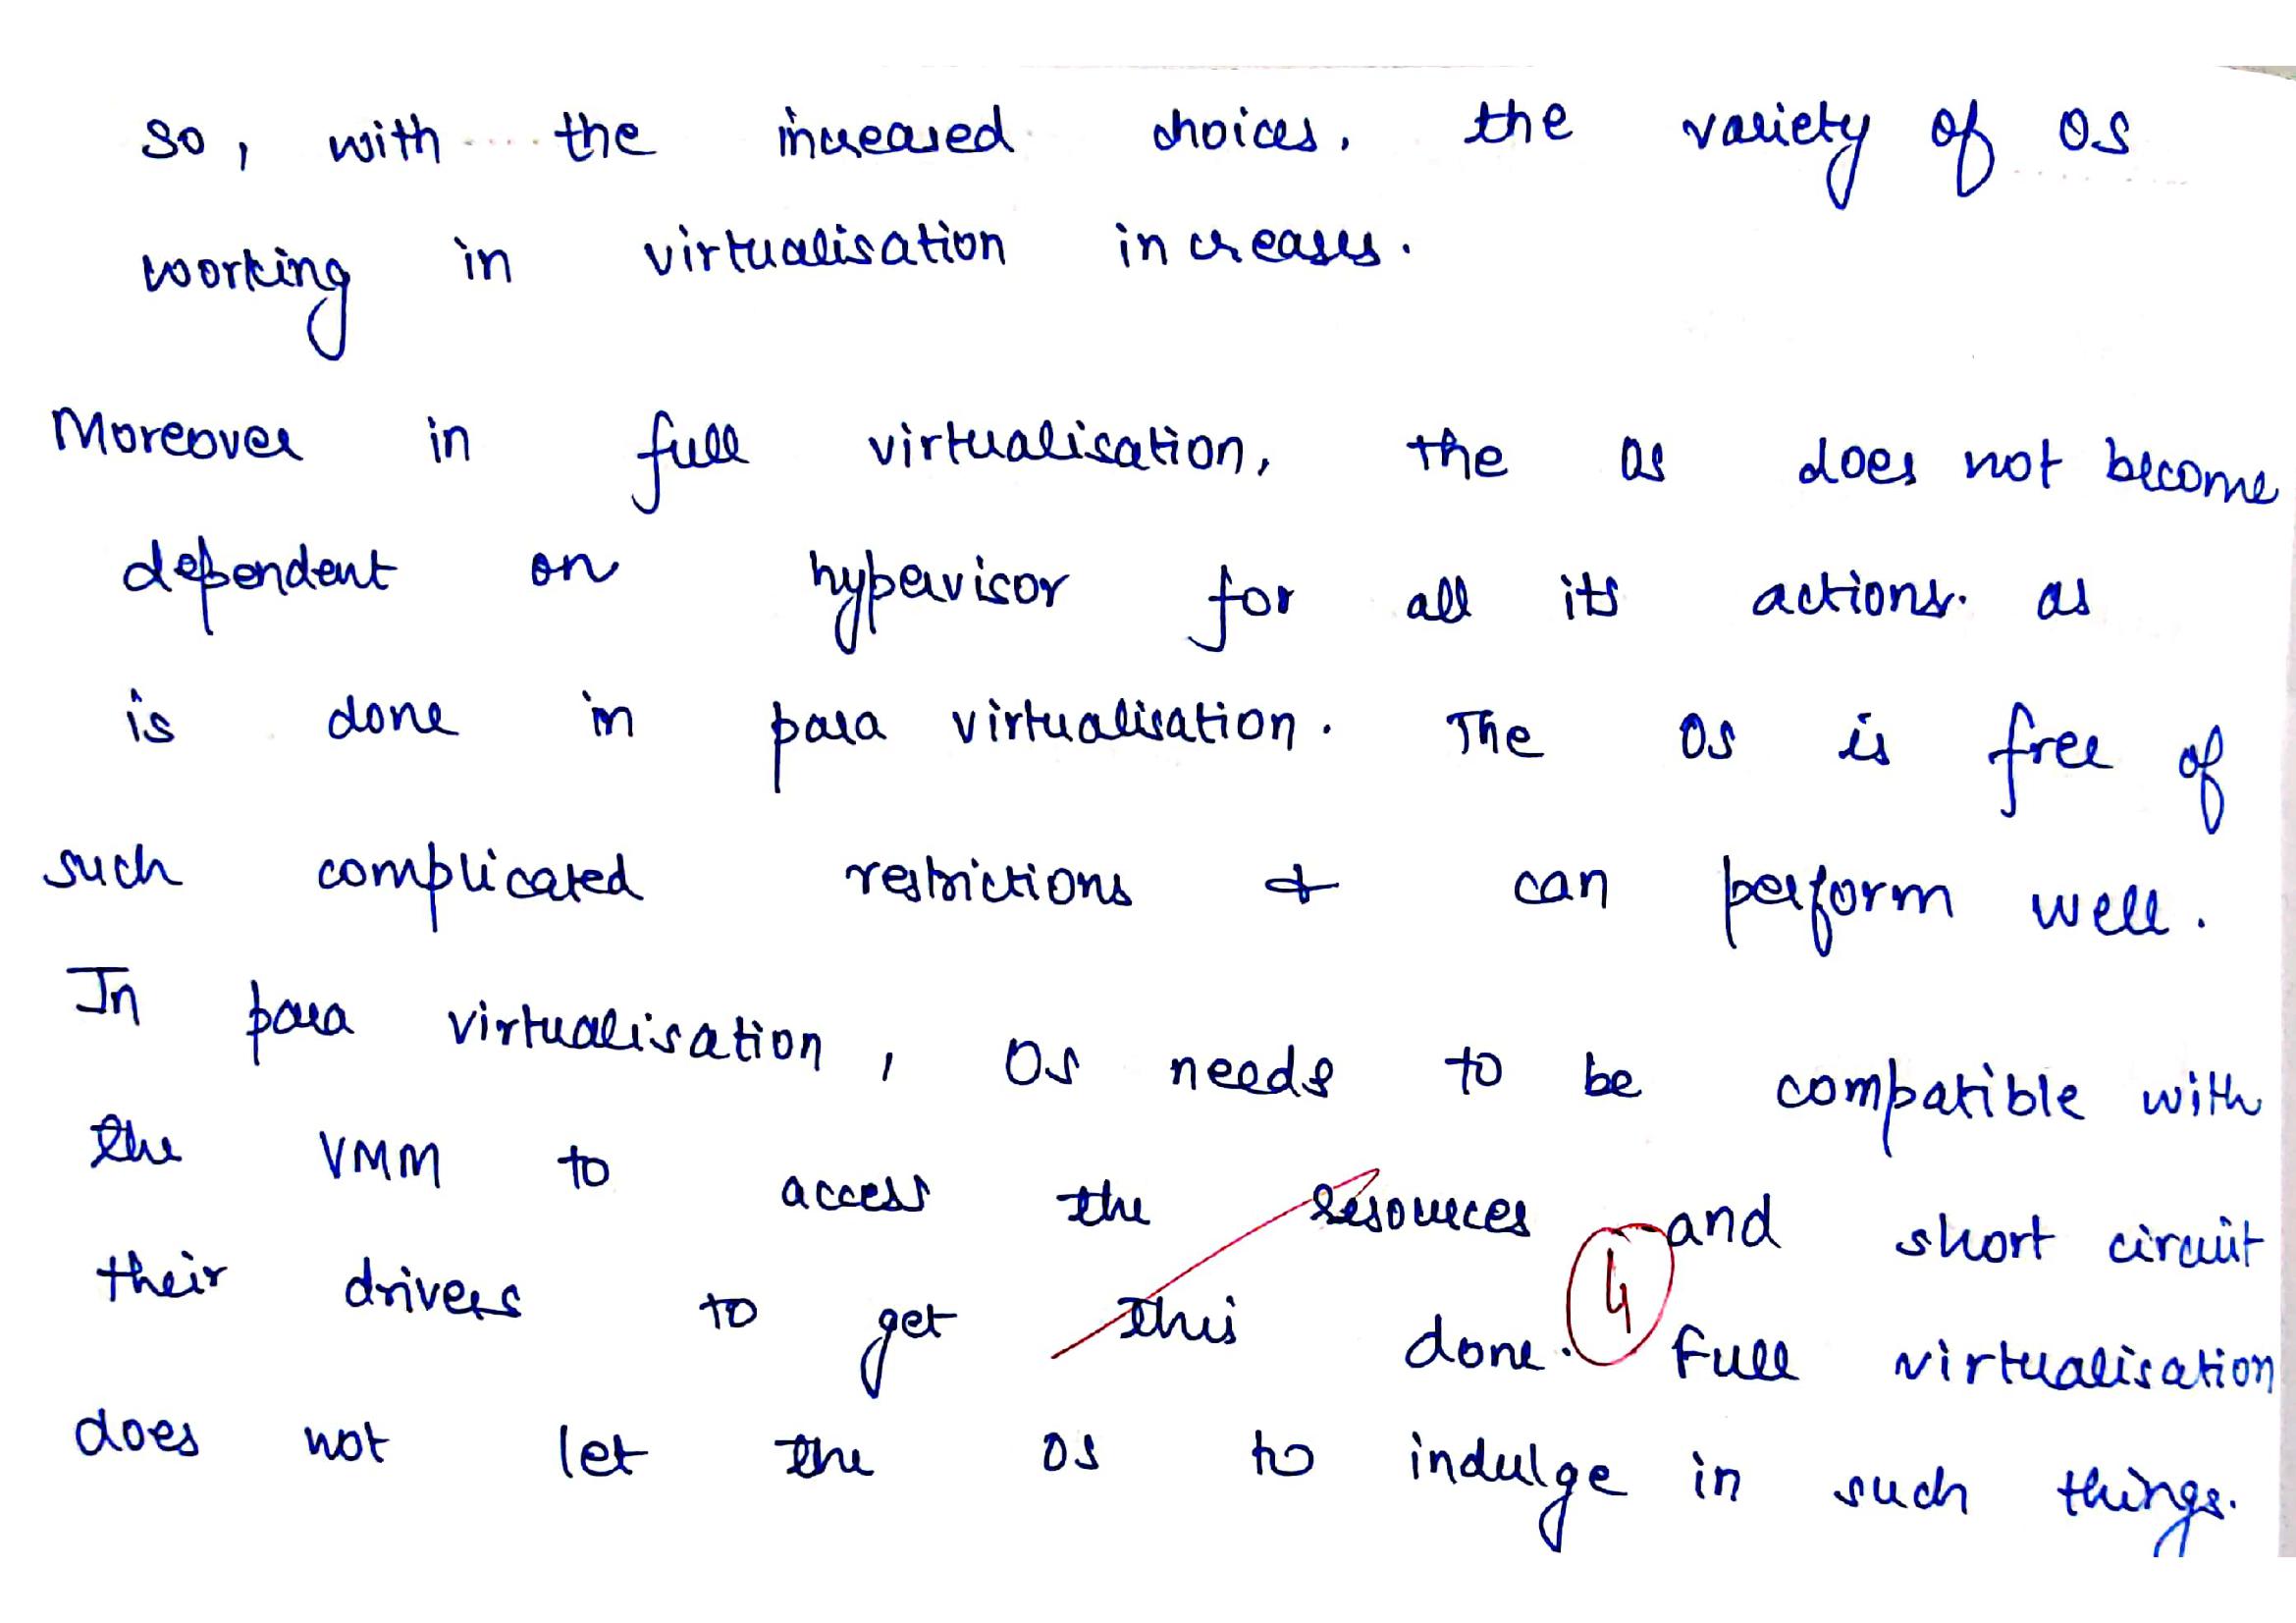 so, with the increased choices, the variety of OS
working in virtualisation increases.
Moreover in full virtualisation, the OS does not become
dependent on hypervisor for all its actions. as
is done in para virtualisation. The OS is free of
such complicated restrictions & can perform well.
In para virtualisation, OS needs to be compatible with
the VMM to access the resources and short circuit
their drivers to get this done. Full virtualisation
4
does not let the OS to indulge in such things.